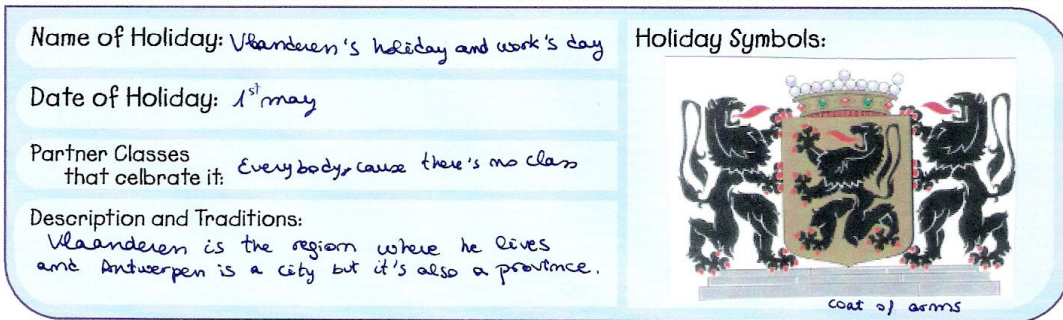 Name of Holiday: Vlanderen's holiday and work's day
Holiday Symbols:
Date of Holiday: 1st may
Partner Classes
that celbrate it: Everybody, cause there's no class
Description and Traditions:
Vlaanderen is the region where he lives
and Antwerpen is a city but it's also a province.
coat of arms